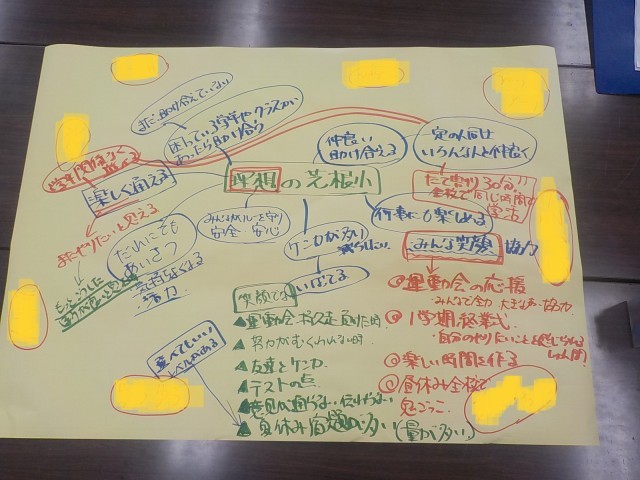 まだ助け合えていない
困っている学年やクラスが
あったら助け合う
仲良い
助け合える
定の人同士
いろんな人と仲良く
学年関係なく
遊べる
楽しく通える
理想の芝根小
たて割り30分
全校で同じ時間で
学活
みんながルールを守り
安全・安心
行事に1番楽しめる
またやりたいと思える
だれにでも
あいさつ
気持ちよくなる
努力
ケンカがない
みんな笑顔
協力
いばってる
笑顔でない
①運動会の応援
・みんなで全力 大きな声・協力
①1学期終業式
・自分のやりたいことを
①楽しい時間を作る
①昼休み全校で
鬼ごっこ
▲運動会 持久走負けた時
▲努力がむくわれない時
▲友達とケンカ
▲テストの点
▲意見が通らない 伝わらない
▲夏休み宿題が多い(量が多い)
レベルがある